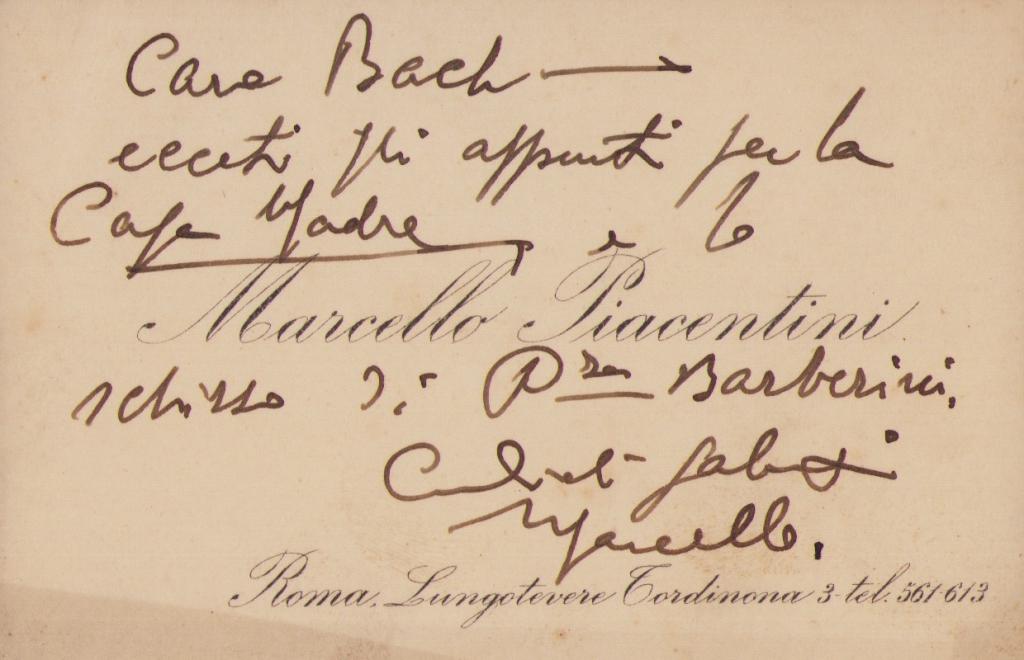 Caro Bach —
eccoti gli appunti per la
Casa Madre, e lo
Marcello Piacentini
schizzo di Pza Barberini.
Cordiali saluti
Marcello.
Roma. Lungotevere Tordinona 3 - tel. 561-613